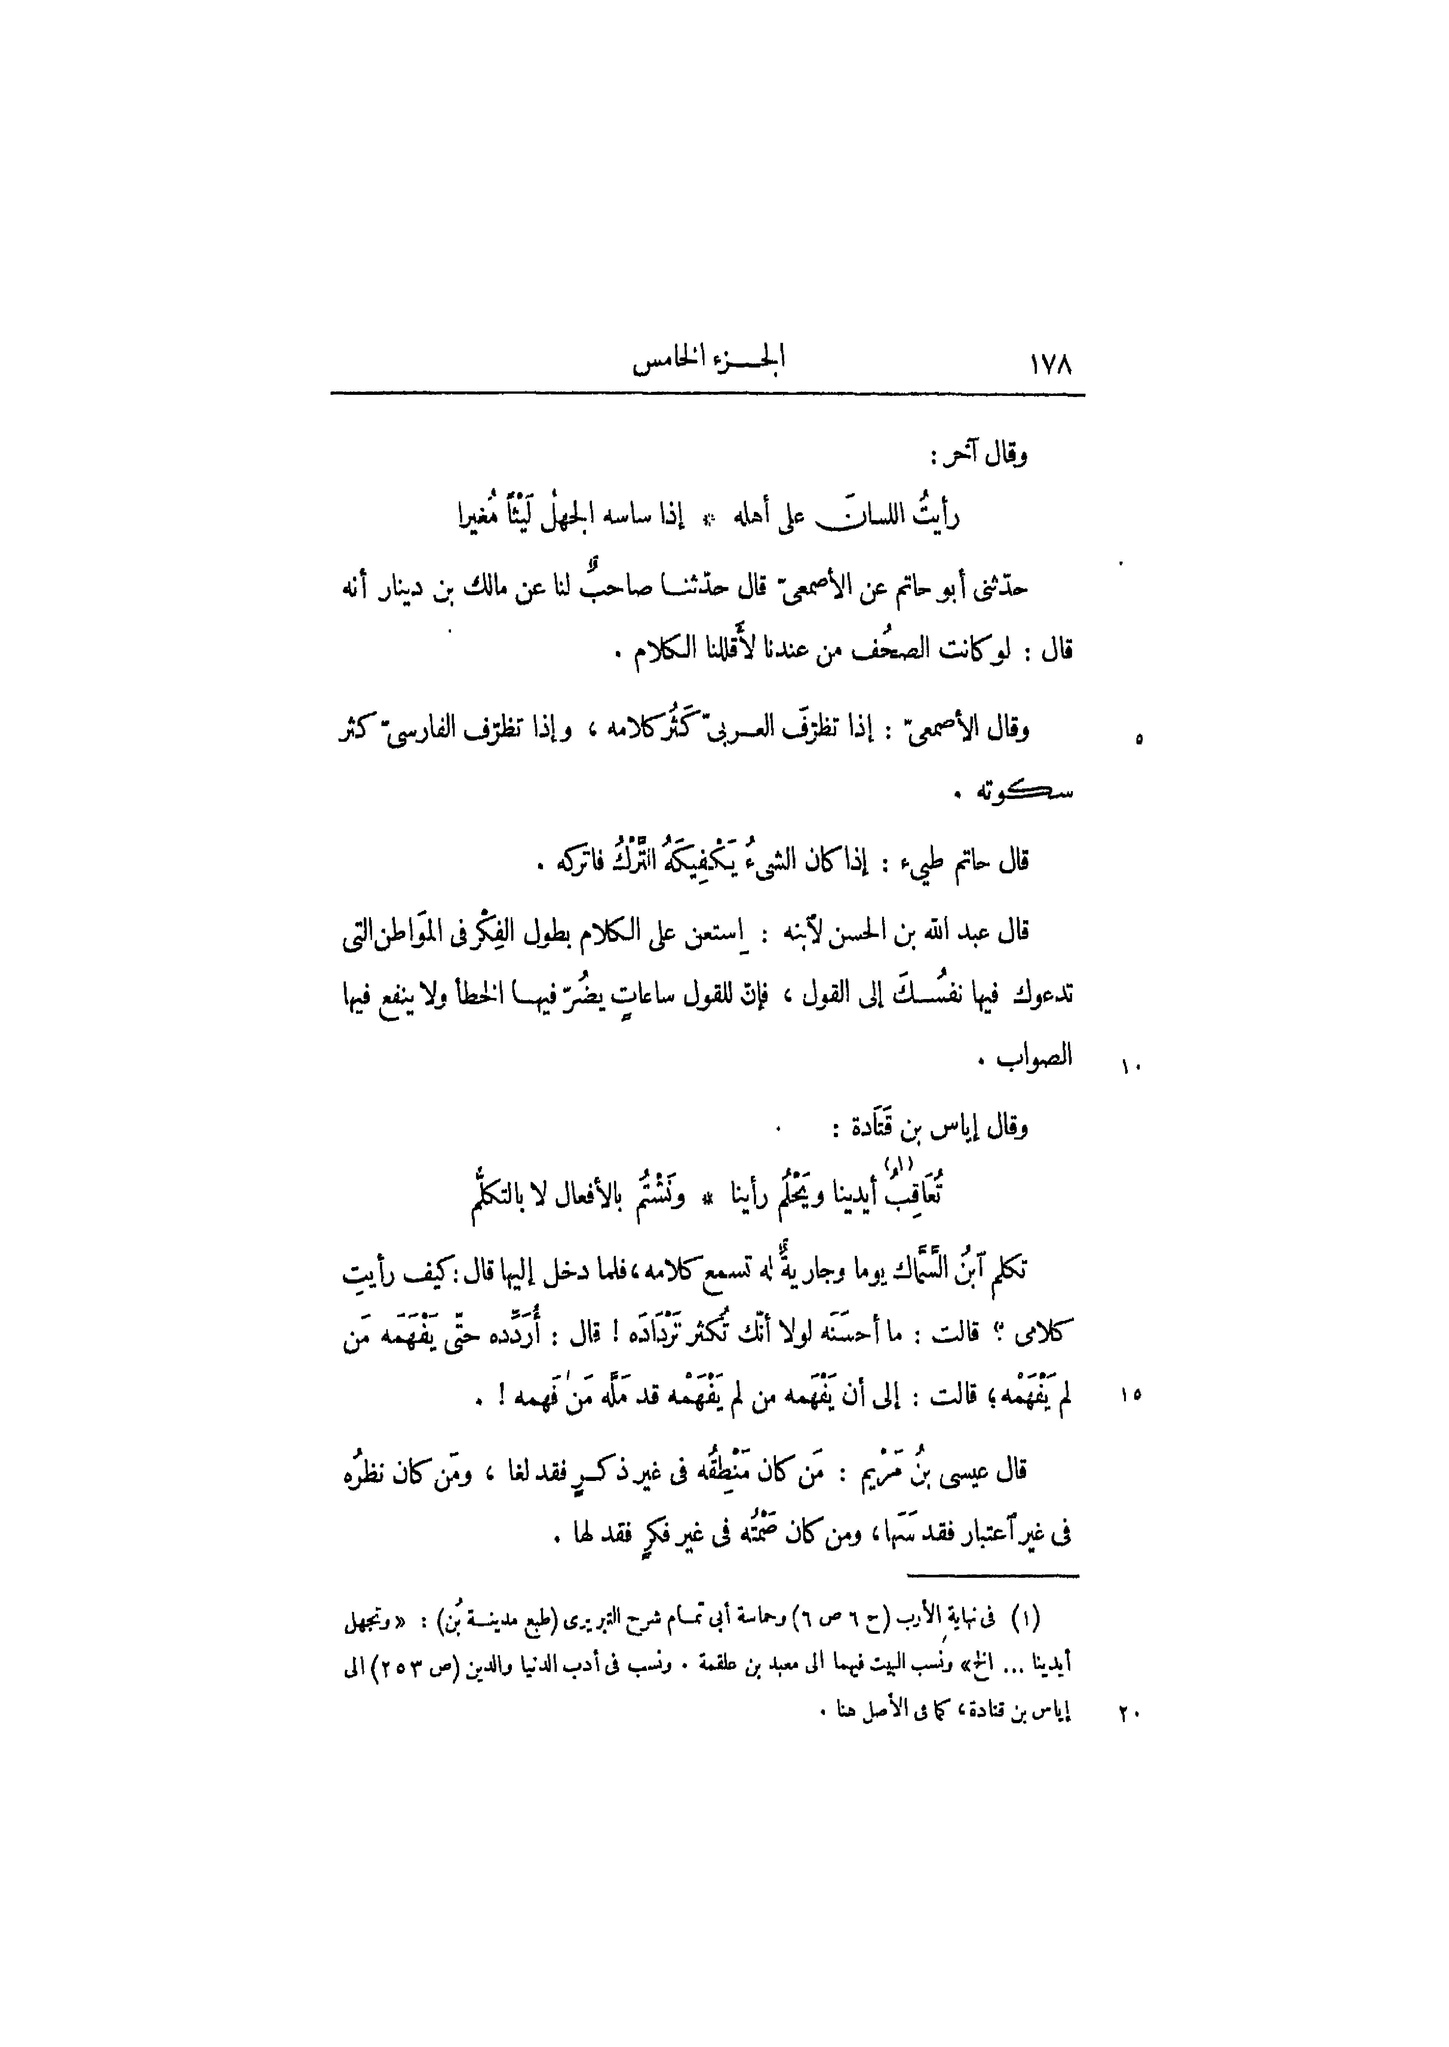 ١٧٨ الجزء الخامس
وقال آخر :
رأيتُ اللسانَ على أهله * إذا ساسه الجهلُ لَيْثًا مُغيرا
حدّثنى أبو حاتم عن الأصمعىّ قال حدّثنا صاحبٌ لنا عن مالك بن دينار أنه
قال : لو كانت الصحُف من عندنا لأَقللنا الكلام .
وقال الأصمعىّ : إذا تظرّفَ العربىّ كَثُر كلامه ، وإذا تظرّف الفارسىّ كثر
٥
سكوته .
قال حاتم طيء : إذا كان الشىءُ يَكْفِيكَهُ التَّرْكُ فاتركه .
قال عبد الله بن الحسن لآبنه : اِستعن على الكلام بطول الفِكْر فى المَواطن التى
تدعوك فيها نفسُكَ إلى القول ، فإنّ للقول ساعاتٍ يضُرّ فيها الخطأ ولا ينفع فيها
الصواب .
١٠
وقال إياس بن قَتَادة :
تُعَاقِبُ (١) أيدينا ويَحْلُم رأينا * ونَشْتُم بالأفعال لا بالتكلُّم
تكلم ٱبنُ السَّمَّاك يوما وجاريةٌ له تسمع كلامه، فلما دخل إليها قال : كيف رأيتِ
كلامى ؟ قالت : ما أحسَنَه لولا أنّك تُكثر تَرْدَادَه ! قال : أُرَدِّده حتّى يَفْهَمَه مَن
لم يَفْهَمْه ؛ قالت : إلى أن يَفْهَمه من لم يَفْهَمْه قد مَلَّه مَن فَهمه ! .
١٥
قال عيسى بنُ مَرْيم : مَن كان مَنْطِقُه فى غير ذكرٍ فقد لغا ، ومَن كان نظرُه
فى غير ٱعتبار فقد سَهَا ، ومن كان صَمْتُه فى غير فكرٍ فقد لها .
(١) فى نهاية الأرب (ح ٦ ص ٦) وحماسة أبى تمام شرح التبريزى (طبع مدينة بُن) : « وتجهل
أيدينا ... الخ » ونسب البيت فيهما الى معبد بن علقمة . ونسب فى أدب الدنيا والدين (ص ٢٥٣) الى
إياس بن قتادة ، كما فى الأصل هنا .
٢٠